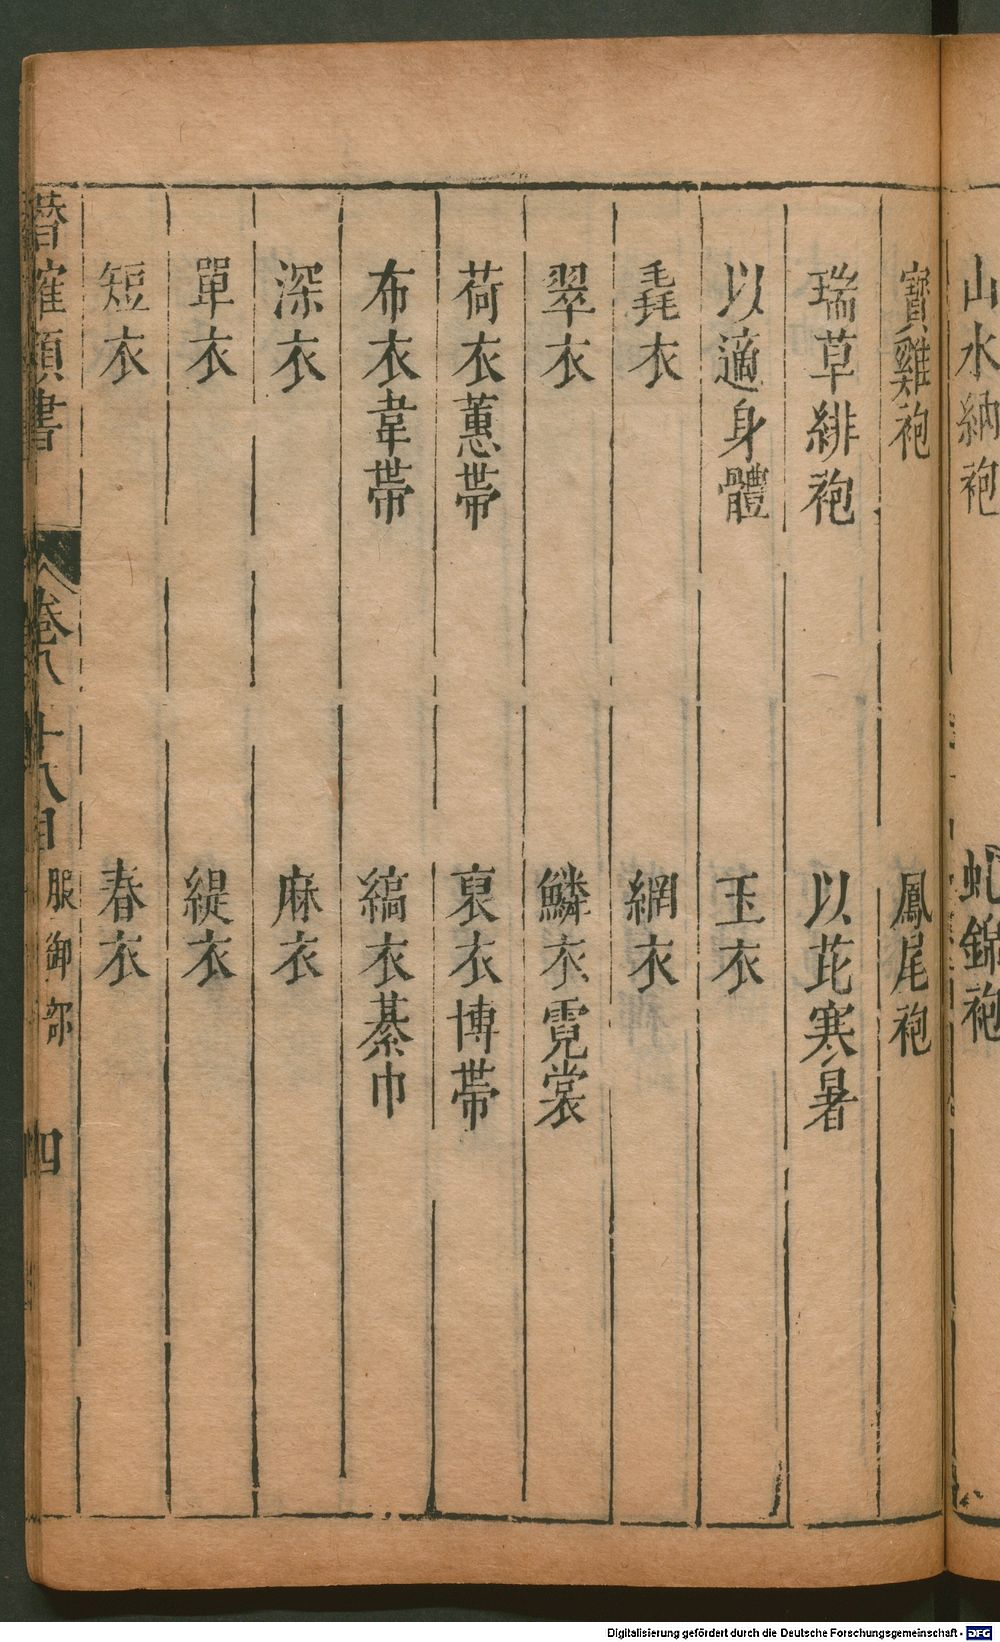 山水納袍 虬錦袍
寶雞袍 鳳尾袍
瑞草緋袍 以芘寒暑
以適身體 玉衣
毳衣 網衣
翠衣 鱗衣霓裳
荷衣蕙帶 裒衣博帶
布衣韋帶 縞衣綦巾
深衣 麻衣
單衣 緹衣
短衣 春衣
潛確類書 卷八十八目 服御部 四
Digitalisierung gefördert durch die Deutsche Forschungsgemeinschaft - DFG